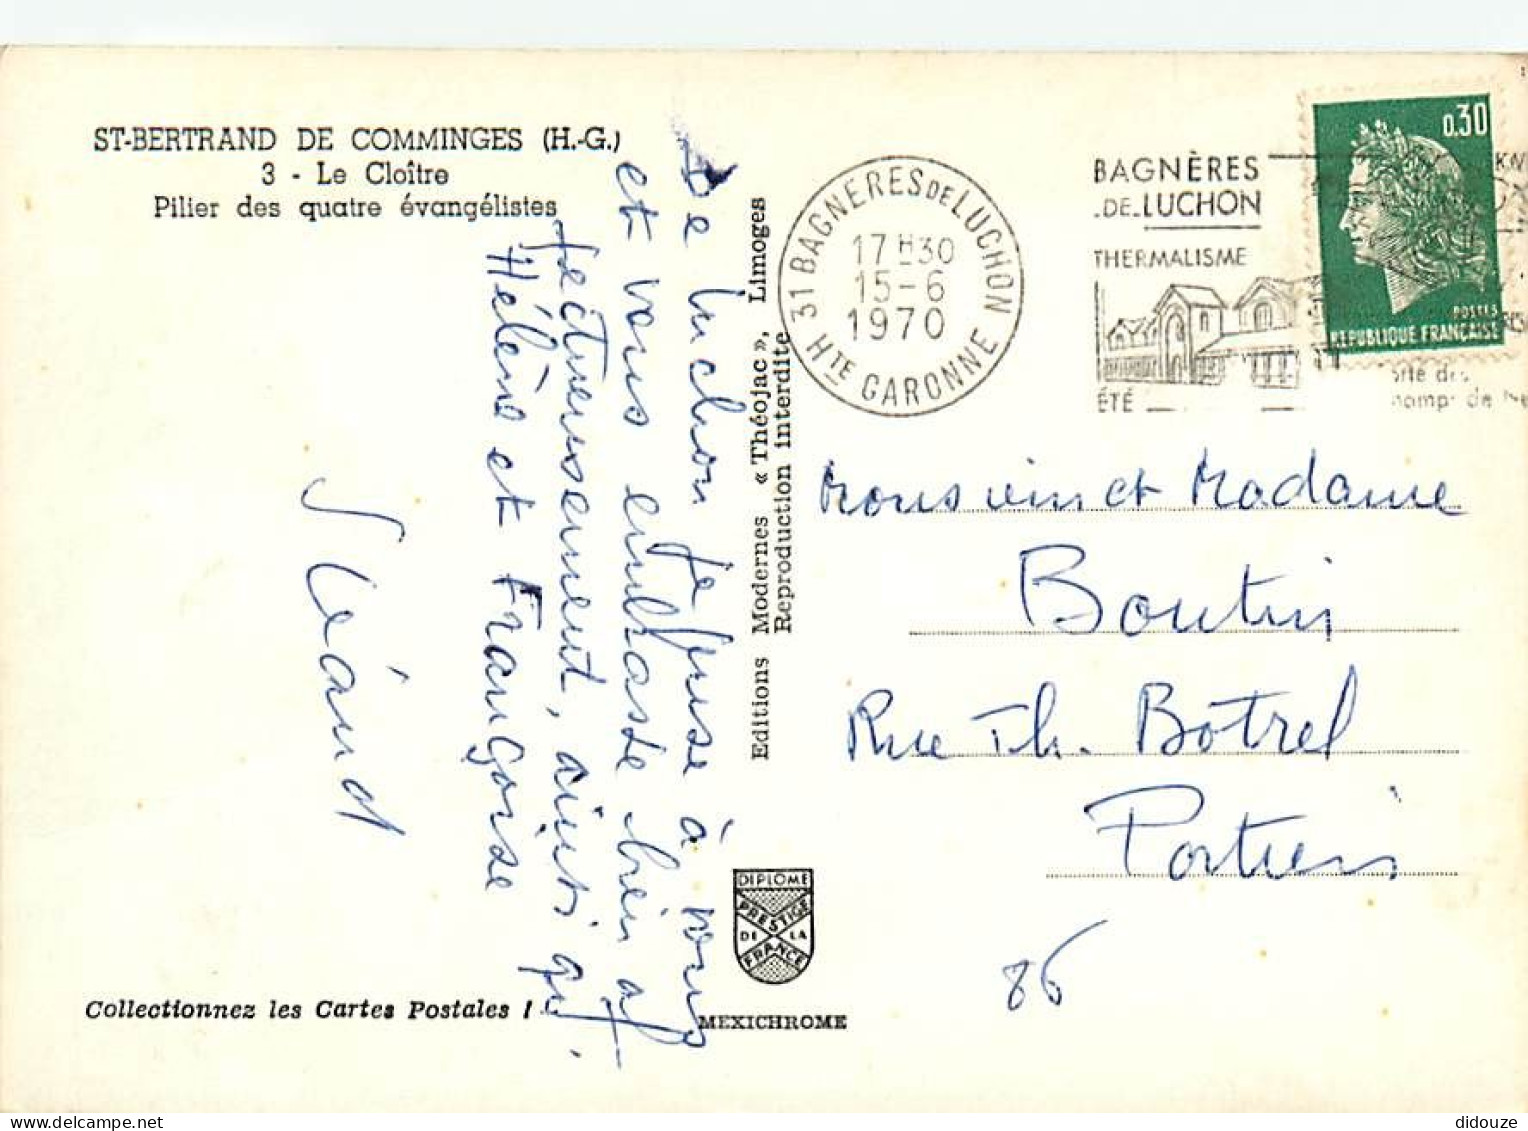 ST-BERTRAND DE COMMINGES (H.-G.)
3 - Le Cloître
Pilier des quatre évangélistes
De Luchon je pense à vous
et vous embrasse bien af-
fectueusement, ainsi qu'
Hélène et Françoise
Editions Modernes « Théojac », Limoges
Reproduction interdite
31 BAGNÈRES DE LUCHON
17H30
15-6
1970
HTE GARONNE
BAGNÈRES
-DE-LUCHON
THERMALISME
ÉTÉ
0,30
POSTES
REPUBLIQUE FRANÇAISE
Monsieur et Madame
Boutin
Rue Th. Botrel
Poitiers
86
DIPLOME
PRESTIGE
DE LA
FRANCE
Collectionnez les Cartes Postales !
MEXICHROME
didouze